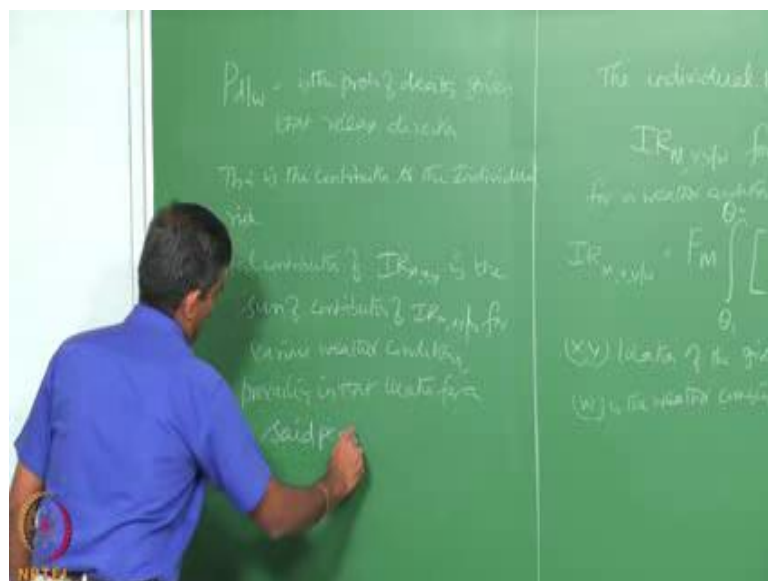 P d/w - is the prob of death given
that release direction
This is the contribution to the Individual
risk
Contribution of IR M,x,y is the
sum of contribution of IR M,x,y/w for
various weather condition,
prevailing in that location for a
said pe
The individual
IR M,x,y/w for
for a weather
θ2
IR M,x,y/w = F M ∫ [
θ1
(x y) location of the gi
(W) is the weather condi
NPTEL